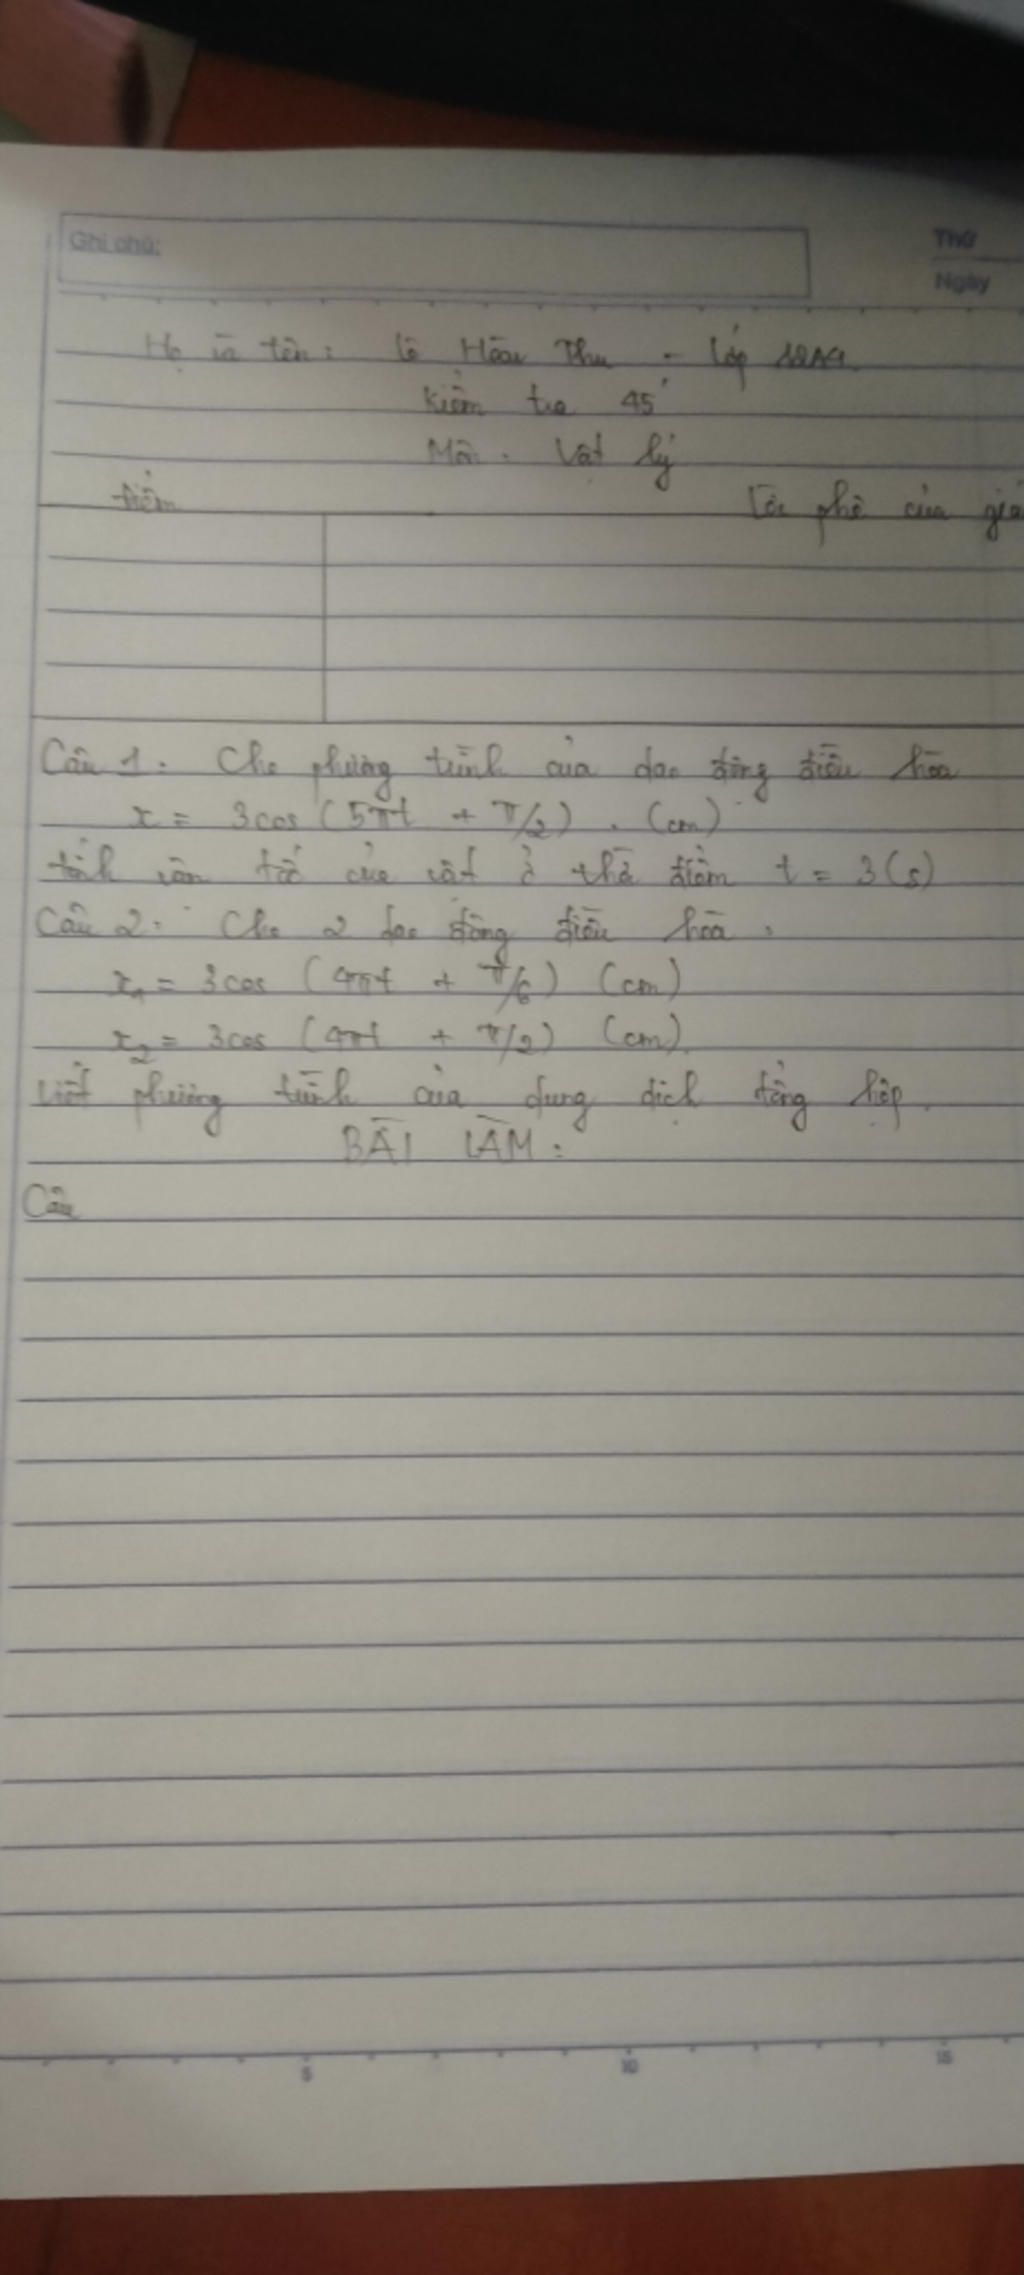 Ghi chú:
Thứ
Ngày
Họ và tên: Lê Hoài Thu - Lớp 12A4.
Kiểm tra 45'
Môn: Vật lý
Điểm Lời phê của giá
Câu 1: Cho phương trình của dao động điều hòa
x = 3cos (5πt + π/2) . (cm)
tính vận tốc của vật ở thời điểm t = 3(s)
Câu 2: Cho 2 dao động điều hòa .
x₁ = 3cos (4πt + π/6) (cm)
x₂ = 3cos (4πt + π/2) (cm).
Viết phương trình của dung dịch tổng hợp.
BÀI LÀM:
Câu
5 10 15